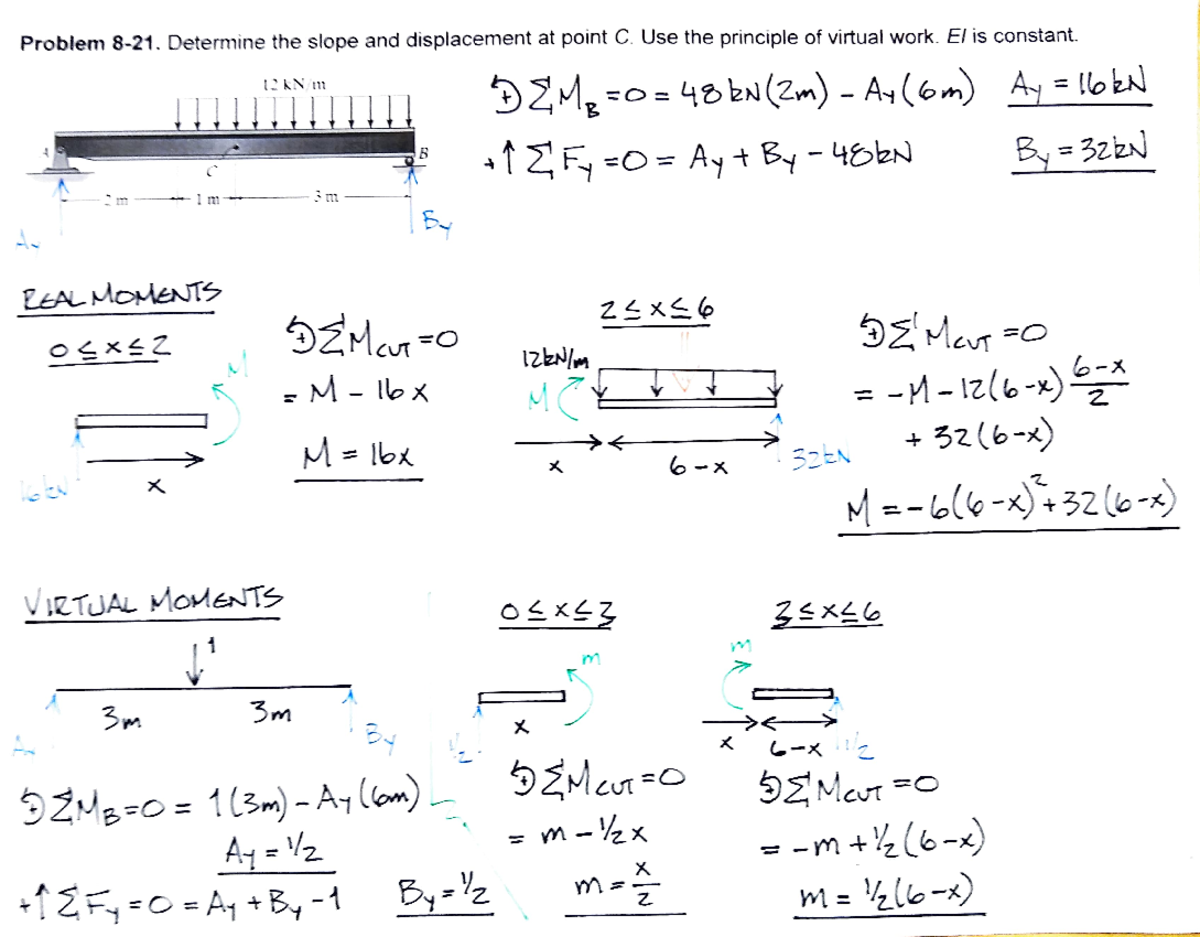 Problem 8-21. Determine the slope and displacement at point C. Use the principle of virtual work. EI is constant.
12 kN/m
A
C
B
2 m
1 m
3 m
Ay
By
↺+ ΣM_B = 0 = 48 kN(2m) - Ay(6m)
Ay = 16 kN
+↑ ΣFy = 0 = Ay + By - 48kN
By = 32kN
REAL MOMENTS
0 ≤ x ≤ 2
M
16kN
x
↺+ ΣM_CUT = 0
= M - 16x
M = 16x
2 ≤ x ≤ 6
12kN/m
M
V
x
6-x
32kN
↺+ ΣM_CUT = 0
= -M - 12(6-x) (6-x)/2
+ 32(6-x)
M = -6(6-x)² + 32(6-x)
VIRTUAL MOMENTS
1
3m
3m
Ay
By
↺+ ΣM_B = 0 = 1(3m) - Ay(6m)
Ay = 1/2
+↑ ΣFy = 0 = Ay + By - 1
By = 1/2
0 ≤ x ≤ 3
m
1/2
x
↺+ ΣM_CUT = 0
= m - 1/2 x
m = x/2
3 ≤ x ≤ 6
m
x
6-x
1/2
↺+ ΣM_CUT = 0
= -m + 1/2(6-x)
m = 1/2(6-x)